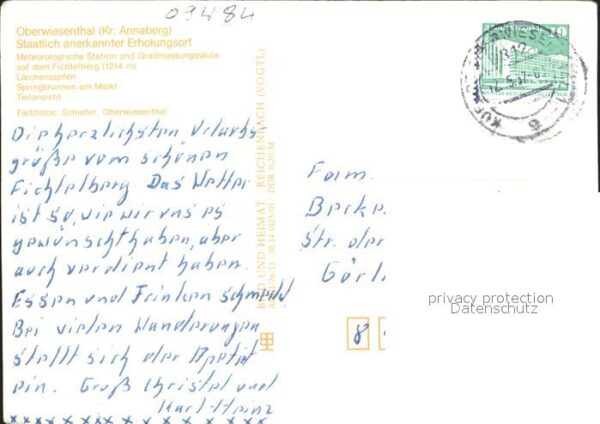 09484
Oberwiesenthal (Kr. Annaberg)
Staatlich anerkannter Erholungsort
Meteorologische Station und Gradmessungssäule
auf dem Fichtelberg (1214 m)
Lärchenzapfen
Springbrunnen am Markt
Teilansicht
Farbfotos: Schiefer, Oberwiesenthal
Die herzlichsten Urlaubs
grüße vom schönen
Fichtelberg. Das Wetter
ist so, wie wir uns es
gewünscht haben, aber
auch verdient haben.
Essen und Trinken schmeckt
Bei vielen Wanderungen
stellt sich der Apetit
ein. Gruß Christel und
Karl-Heinz
BILD UND HEIMAT REICHENBACH (VOGTL)
10
Fam.
Becke
Str. der
Görl
8
privacy protection
Datenschutz